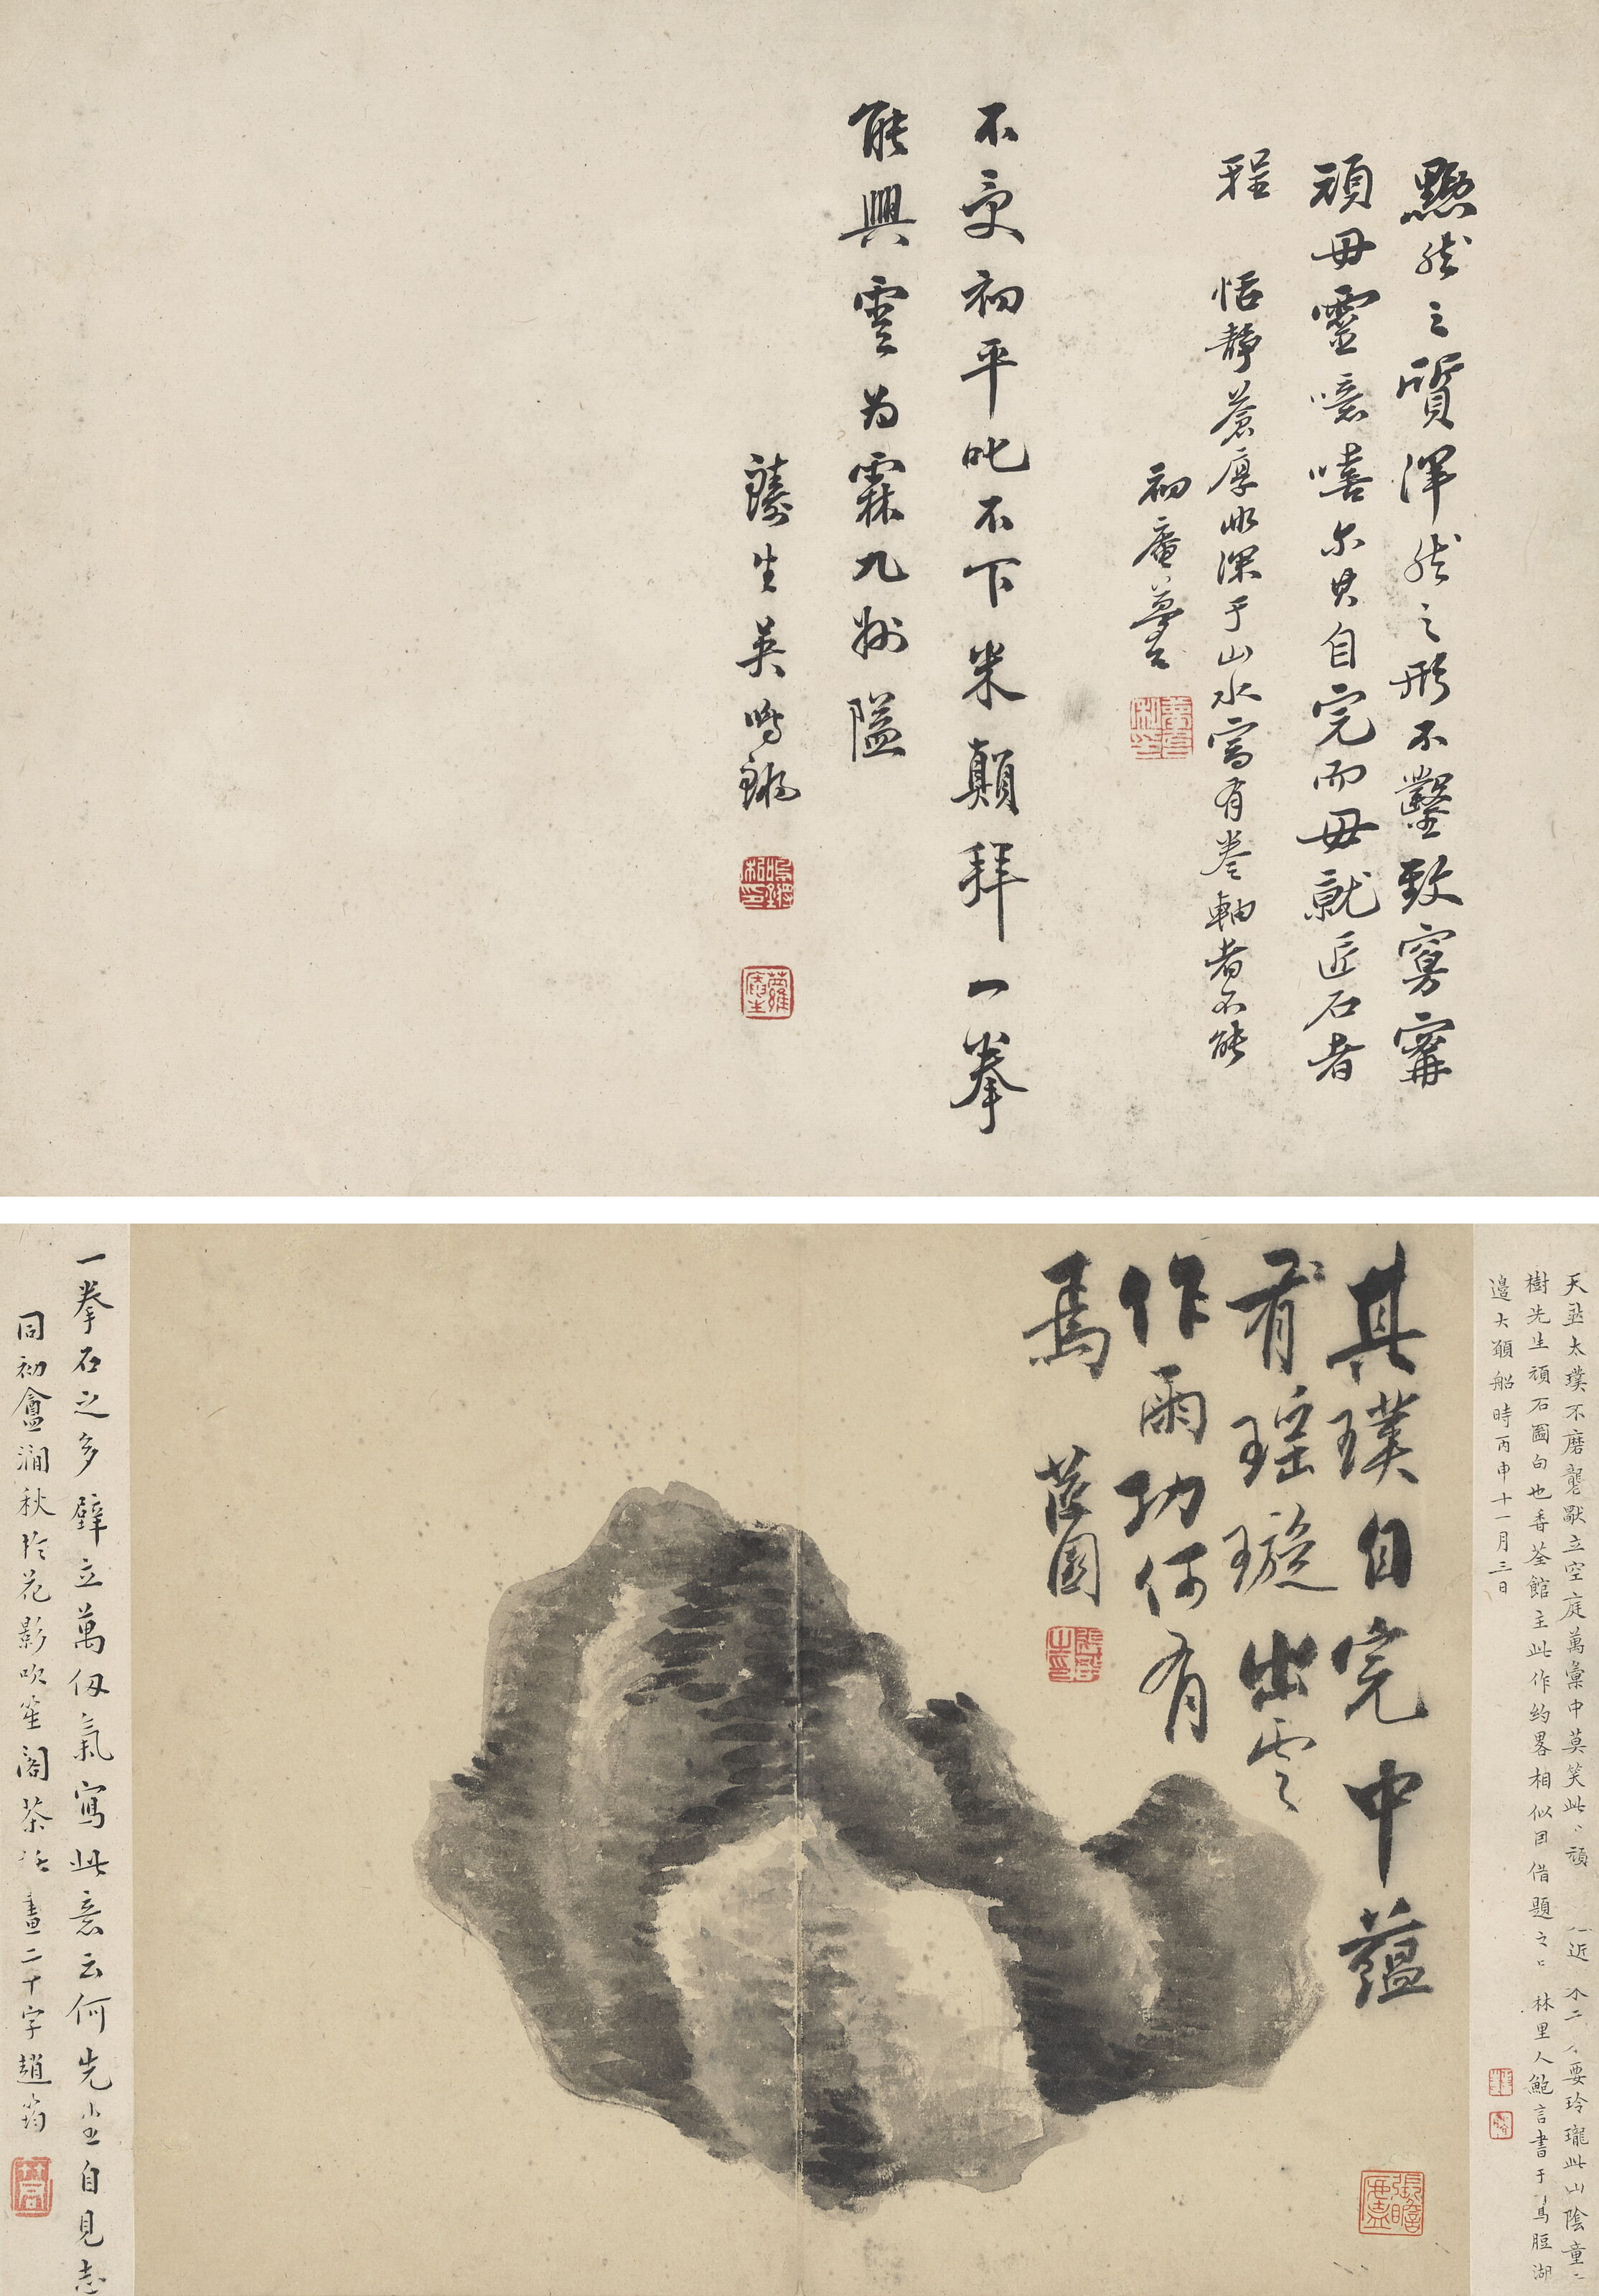 黟然之質渾然之形不鑿致窮寗
頑毋靈噫嘻尔其自完而毋就匠石者
程
恬靜蒼厚此深于山水富有卷軸者不能
初盦
不受初平叱不下米顛拜一拳
能興雲为霖九州隘
生吳鳴鏘
天亚太璞不磨礲獸立空庭萬彙中莫笑此頑
近
要玲瓏此山陰童二
樹先生頑石圖句也香荃館主此作約畧相似因借題之
林里人鮑言書于鳥脰湖
邉大顧船時丙申十一月三日
其璞自完中蘊
有瑤璇出雲
作雨功何有
焉
荔園
一拳石之多壁立萬仭氣寫此意云何先生自見志
同初盦澗秋於花影吹笙閣茶話畫二十字趙筠